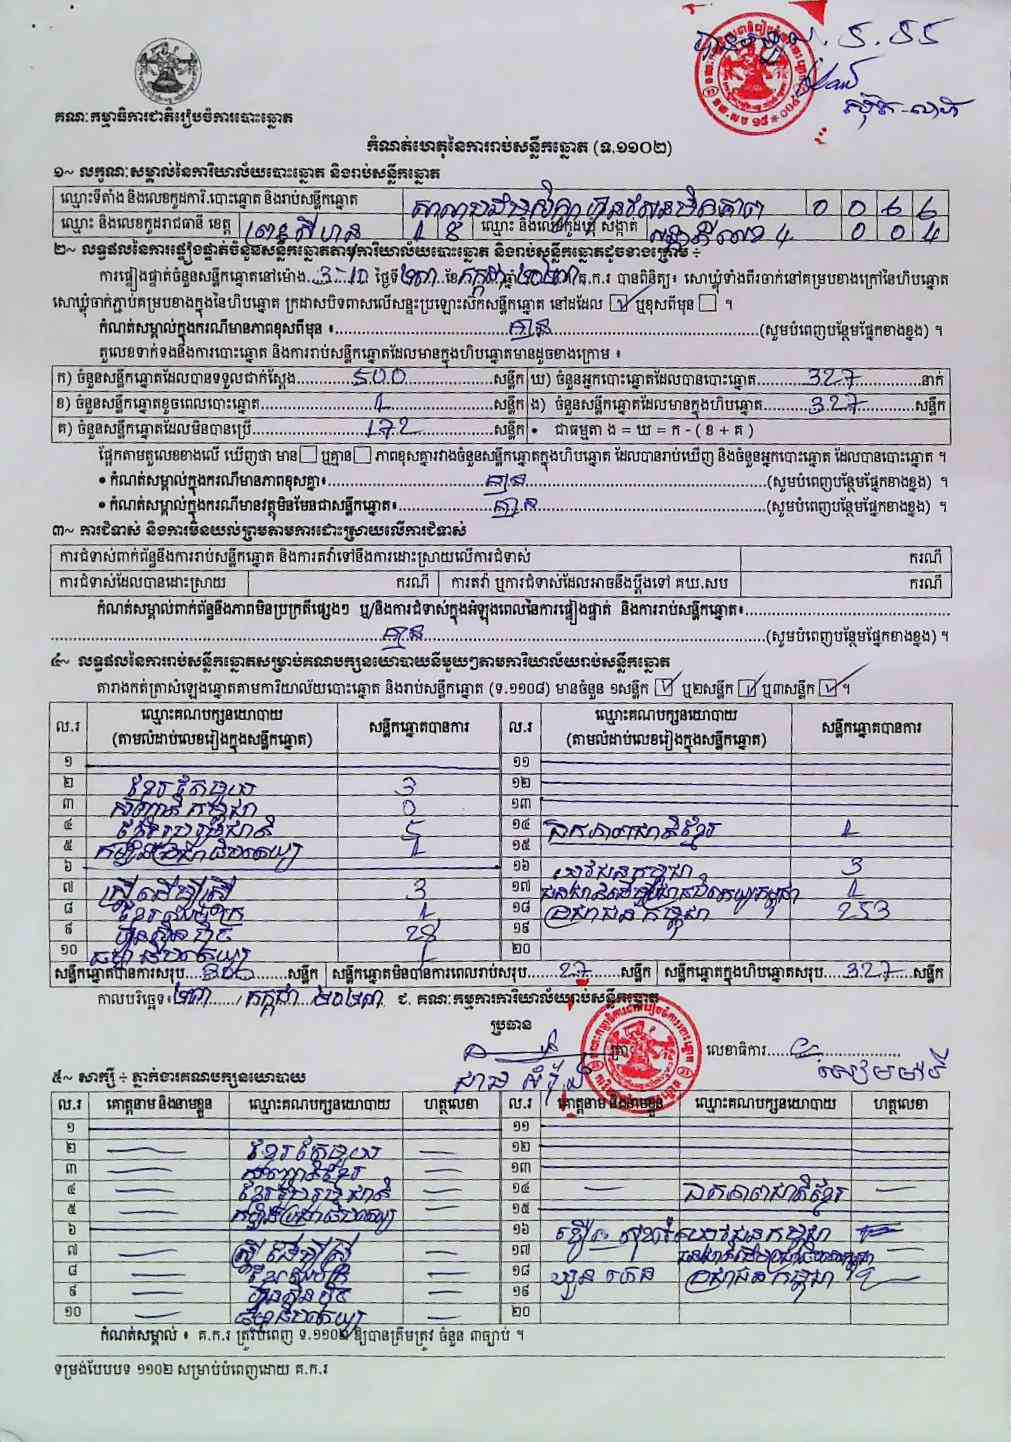 គណៈកម្មាធិការជាតិរៀបចំការបោះឆ្នោត
កំណត់ហេតុនៃការរាប់សន្លឹកឆ្នោត (ទ.១១០២)
១~ លក្ខណៈសម្គាល់នៃការិយាល័យបោះឆ្នោត និងរាប់សន្លឹកឆ្នោត
ឈ្មោះទីតាំង និងលេខកូដការិ.បោះឆ្នោត និងរាប់សន្លឹកឆ្នោត 0 0 6 6
ឈ្មោះ និងលេខកូដរាជធានី ខេត្ត ព្រះសីហនុ 1 8 ឈ្មោះ និងលេខកូដឃុំ សង្កាត់ លេខ 4 0 0 4
២~ លទ្ធផលនៃការផ្ទៀងផ្ទាត់ចំនួនសន្លឹកឆ្នោតតាមការិយាល័យបោះឆ្នោត និងរាប់សន្លឹកឆ្នោតដូចខាងក្រោម ÷
ការផ្ទៀងផ្ទាត់ចំនួនសន្លឹកឆ្នោតនៅម៉ោង 3:10 ថ្ងៃទី ២៣ ខែ កក្កដា ឆ្នាំ ២០២៣ គ.ក.រ បានពិនិត្យ៖ សោឃ្លុំទាំងពីរចាក់នៅគម្របខាងក្រៅនៃហិបឆ្នោត
សោឃ្លុំចាក់ភ្ជាប់គម្របខាងក្នុងនៃហិបឆ្នោត ក្រដាសបិទពាសលើសន្ទះប្រឡោះស៊កសន្លឹកឆ្នោត នៅដដែល ☑ ឬខុសពីមុន ☐ ។
កំណត់សម្គាល់ក្នុងករណីមានភាពខុសពីមុន ៖ គ្មាន (សូមបំពេញបន្ថែមផ្នែកខាងខ្នង) ។
តួលេខទាក់ទងនឹងការបោះឆ្នោត និងការរាប់សន្លឹកឆ្នោតដែលមានក្នុងហិបឆ្នោតមានដូចខាងក្រោម ៖
ក) ចំនួនសន្លឹកឆ្នោតដែលបានទទួលជាក់ស្តែង 500 សន្លឹក ឃ) ចំនួនអ្នកបោះឆ្នោតដែលបានបោះឆ្នោត 327 នាក់
ខ) ចំនួនសន្លឹកឆ្នោតខូចពេលបោះឆ្នោត 1 សន្លឹក ង) ចំនួនសន្លឹកឆ្នោតដែលមានក្នុងហិបឆ្នោត 327 សន្លឹក
គ) ចំនួនសន្លឹកឆ្នោតដែលមិនបានប្រើ 172 សន្លឹក • ជាធម្មតា ង = ឃ = ក - ( ខ + គ )
ផ្អែកតាមតួលេខខាងលើ ឃើញថា មាន ☐ ឬគ្មាន ☐ ភាពខុសគ្នារវាងចំនួនសន្លឹកឆ្នោតក្នុងហិបឆ្នោត ដែលបានរាប់ឃើញ និងចំនួនអ្នកបោះឆ្នោត ដែលបានបោះឆ្នោត ។
• កំណត់សម្គាល់ក្នុងករណីមានភាពខុសគ្នា៖ គ្មាន (សូមបំពេញបន្ថែមផ្នែកខាងខ្នង) ។
• កំណត់សម្គាល់ក្នុងករណីមានវត្ថុមិនមែនជាសន្លឹកឆ្នោត៖ គ្មាន (សូមបំពេញបន្ថែមផ្នែកខាងខ្នង) ។
៣~ ការជំទាស់ និងការមិនយល់ព្រមតាមការដោះស្រាយលើការជំទាស់
ការជំទាស់ពាក់ព័ន្ធនឹងការរាប់សន្លឹកឆ្នោត និងការតវ៉ាទៅនឹងការដោះស្រាយលើការជំទាស់ ករណី
ការជំទាស់ដែលបានដោះស្រាយ ករណី ការតវ៉ា ឬការជំទាស់ដែលអាចនឹងប្តឹងទៅ គឃ.សប ករណី
កំណត់សម្គាល់ពាក់ព័ន្ធនឹងភាពមិនប្រក្រតីផ្សេងៗ ឬ/និងការជំទាស់ក្នុងអំឡុងពេលនៃការផ្ទៀងផ្ទាត់ និងការរាប់សន្លឹកឆ្នោត៖
គ្មាន (សូមបំពេញបន្ថែមផ្នែកខាងខ្នង) ។
៤~ លទ្ធផលនៃការរាប់សន្លឹកឆ្នោតសម្រាប់គណបក្សនយោបាយនីមួយៗតាមការិយាល័យរាប់សន្លឹកឆ្នោត
តារាងកត់ត្រាសំឡេងឆ្នោតតាមការិយាល័យបោះឆ្នោត និងរាប់សន្លឹកឆ្នោត (ទ.១១០៨) មានចំនួន ១សន្លឹក ☑ ឬ២សន្លឹក ☑ ឬ៣សន្លឹក ☑ ។
ល.រ ឈ្មោះគណបក្សនយោបាយ (តាមលំដាប់លេខរៀងក្នុងសន្លឹកឆ្នោត) សន្លឹកឆ្នោតបានការ ល.រ ឈ្មោះគណបក្សនយោបាយ (តាមលំដាប់លេខរៀងក្នុងសន្លឹកឆ្នោត) សន្លឹកឆ្នោតបានការ
១ ១១
២ ខ្មែរតែមួយ 3 ១២
៣ កម្ពុជា 0 ១៣
៤ 5 ១៤ ឯកភាពជាតិខ្មែរ 1
៥ កម្លាំងប្រជាធិបតេយ្យ 1 ១៥
៦ ១៦ យុវជនកម្ពុជា 3
៧ ស្ត្រីដើម្បីស្ត្រី 3 ១៧ 1
៨ ខ្មែរ 1 ១៨ ប្រជាជនកម្ពុជា 253
៩ ហ៊្វុនស៊ិនប៉ិច ១៩
១០ ២០
សន្លឹកឆ្នោតបានការសរុប សន្លឹក សន្លឹកឆ្នោតមិនបានការពេលរាប់សរុប 27 សន្លឹក សន្លឹកឆ្នោតក្នុងហិបឆ្នោតសរុប 327 សន្លឹក
កាលបរិច្ឆេទ៖ ២៣ / កក្កដា ២០២៣ ជ. គណៈកម្មការការិយាល័យរាប់សន្លឹកឆ្នោត
ប្រធាន
លេខាធិការ
៥~ សាក្សី ÷ ភ្នាក់ងារគណបក្សនយោបាយ
ល.រ គោត្តនាម និងនាមខ្លួន ឈ្មោះគណបក្សនយោបាយ ហត្ថលេខា ល.រ គោត្តនាម និងនាមខ្លួន ឈ្មោះគណបក្សនយោបាយ ហត្ថលេខា
១ ១១
២ ខ្មែរតែមួយ ១២
៣ ១៣
៤ ១៤ ឯកភាពជាតិខ្មែរ
៥ កម្លាំងប្រជាធិបតេយ្យ ១៥
៦ ១៦ យុវជនកម្ពុជា
៧ ស្ត្រីដើម្បីស្ត្រី ១៧
៨ ១៨ ប្រជាជនកម្ពុជា
៩ ហ៊្វុនស៊ិនប៉ិច ១៩
១០ ២០
កំណត់សម្គាល់ ៖ គ.ក.រ ត្រូវបំពេញ ទ.១១០២ ឱ្យបានត្រឹមត្រូវ ចំនួន ៣ច្បាប់ ។
ទម្រង់បែបបទ ១១០២ សម្រាប់បំពេញដោយ គ.ក.រ